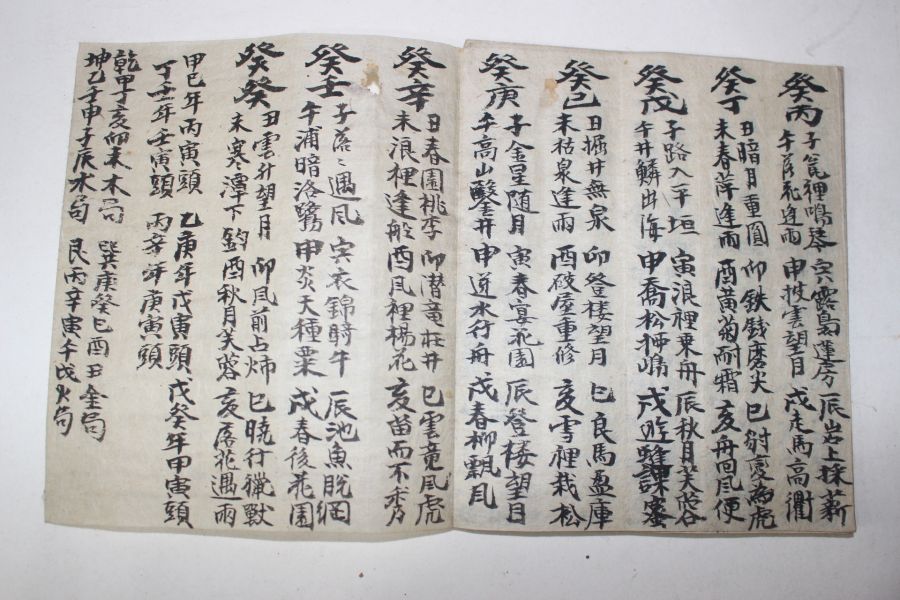 癸丙 子瓮裡鳴琴 寅露蓮房 辰岩上採薪
午落花逢雨 申披雲望月 戌走馬高衢
癸丁 丑暗月重圓 卯鉄錢磨尖 巳豺変為虎
未春萍逢雨 酉黃菊耐霜 亥舟回風便
癸戊 子路入平垣 寅浪裡乗舟 辰秋月芙蓉
午井鱗出海 申喬松 戌遊蜂課蜜
癸己 丑掘井無泉 卯登楼望月 巳良馬盈庫
未枯泉逢雨 酉破屋重修 亥雪裡栽松
癸庚 子金星随月 寅春宴花園 辰登楼望月
午高山鑿井 申逆水行舟 戌春柳飄風
癸辛 丑春園桃李 卯潜竜在井 巳雲竟風虎
未浪裡逢船 酉風裡楊花 亥苗而不秀
癸壬 子落々遇風 寅衣錦騎牛 辰池魚脫網
午浦暗落鷺 申炎天種粟 戌春後花園
癸癸 丑雲外望月 卯風前占炳 巳曉行獵獸
未寒潭下釣 酉秋月芙蓉 亥落花遇雨
甲己年丙寅頭 乙庚年戊寅頭 戊癸年甲寅頭
丁壬年壬寅頭 丙辛年庚寅頭
乾甲丁亥卯未木局 巽庚癸巳酉丑金局
坤乙壬申子辰水局 艮丙辛寅午戌火局